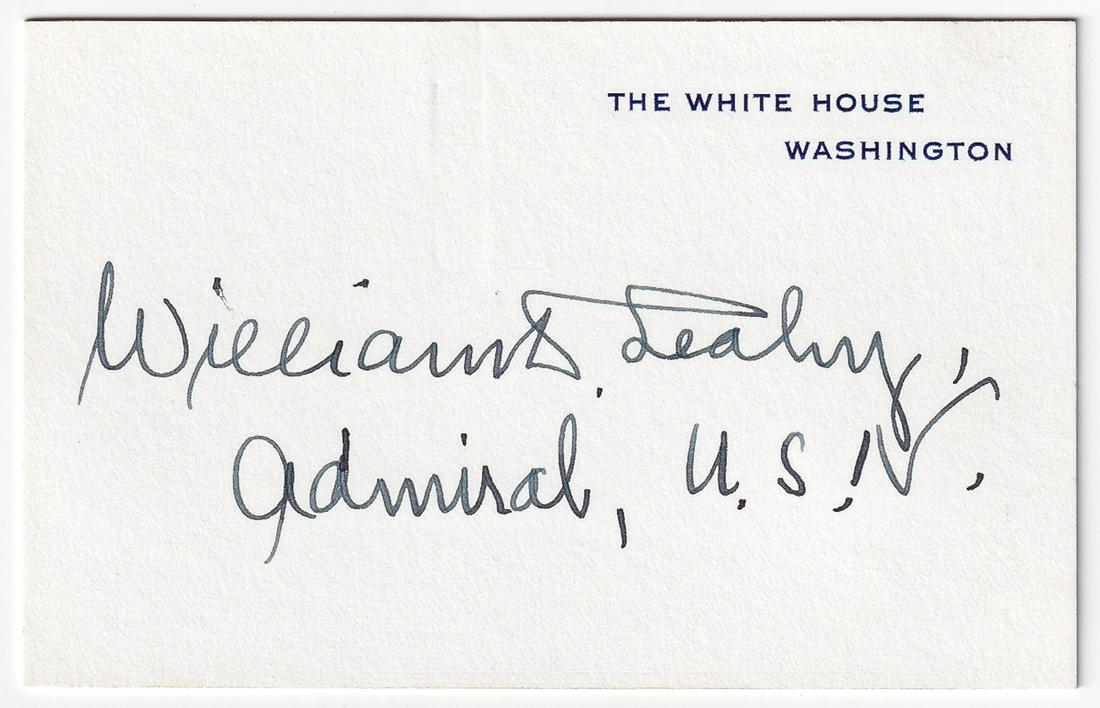 THE WHITE HOUSE
WASHINGTON
William D. Leahy,
Admiral, U.S.N.